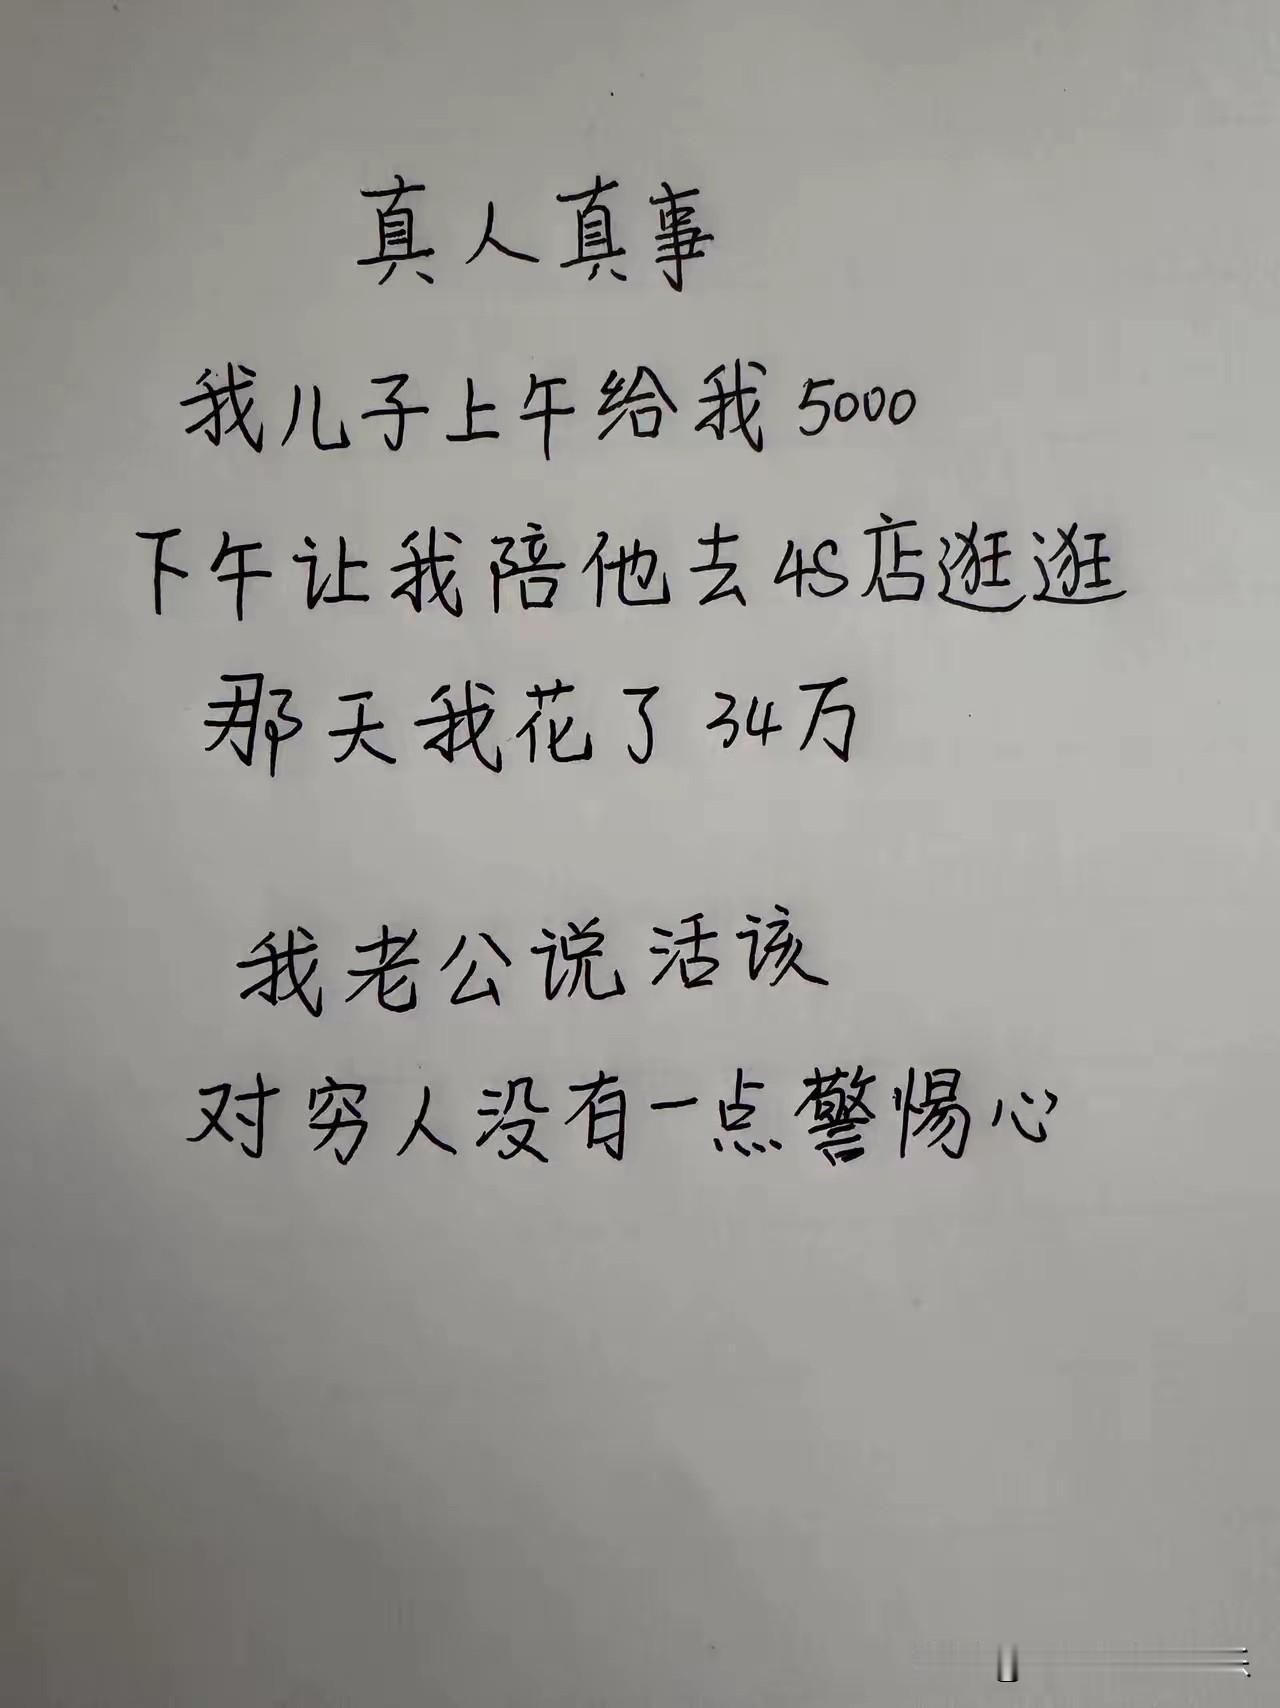 真人真事
我儿子上午给我5000
下午让我陪他去4S店逛逛
那天我花了34万
我老公说活该
对穷人没有一点警惕心